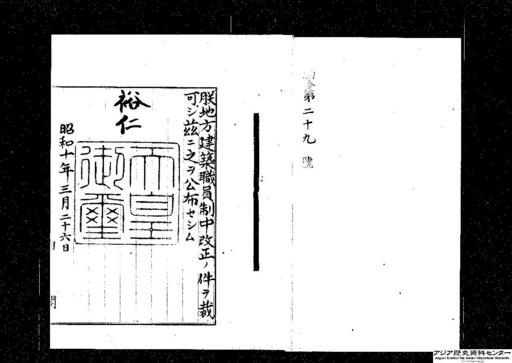 勅令第二十九號
朕地方建築職員制中改正ノ件ヲ裁
可シ茲ニ之ヲ公布セシム
裕仁
天皇御璽
昭和十年三月二十六日
アジア歴史資料センター
Japan Center for Asian Historical Records